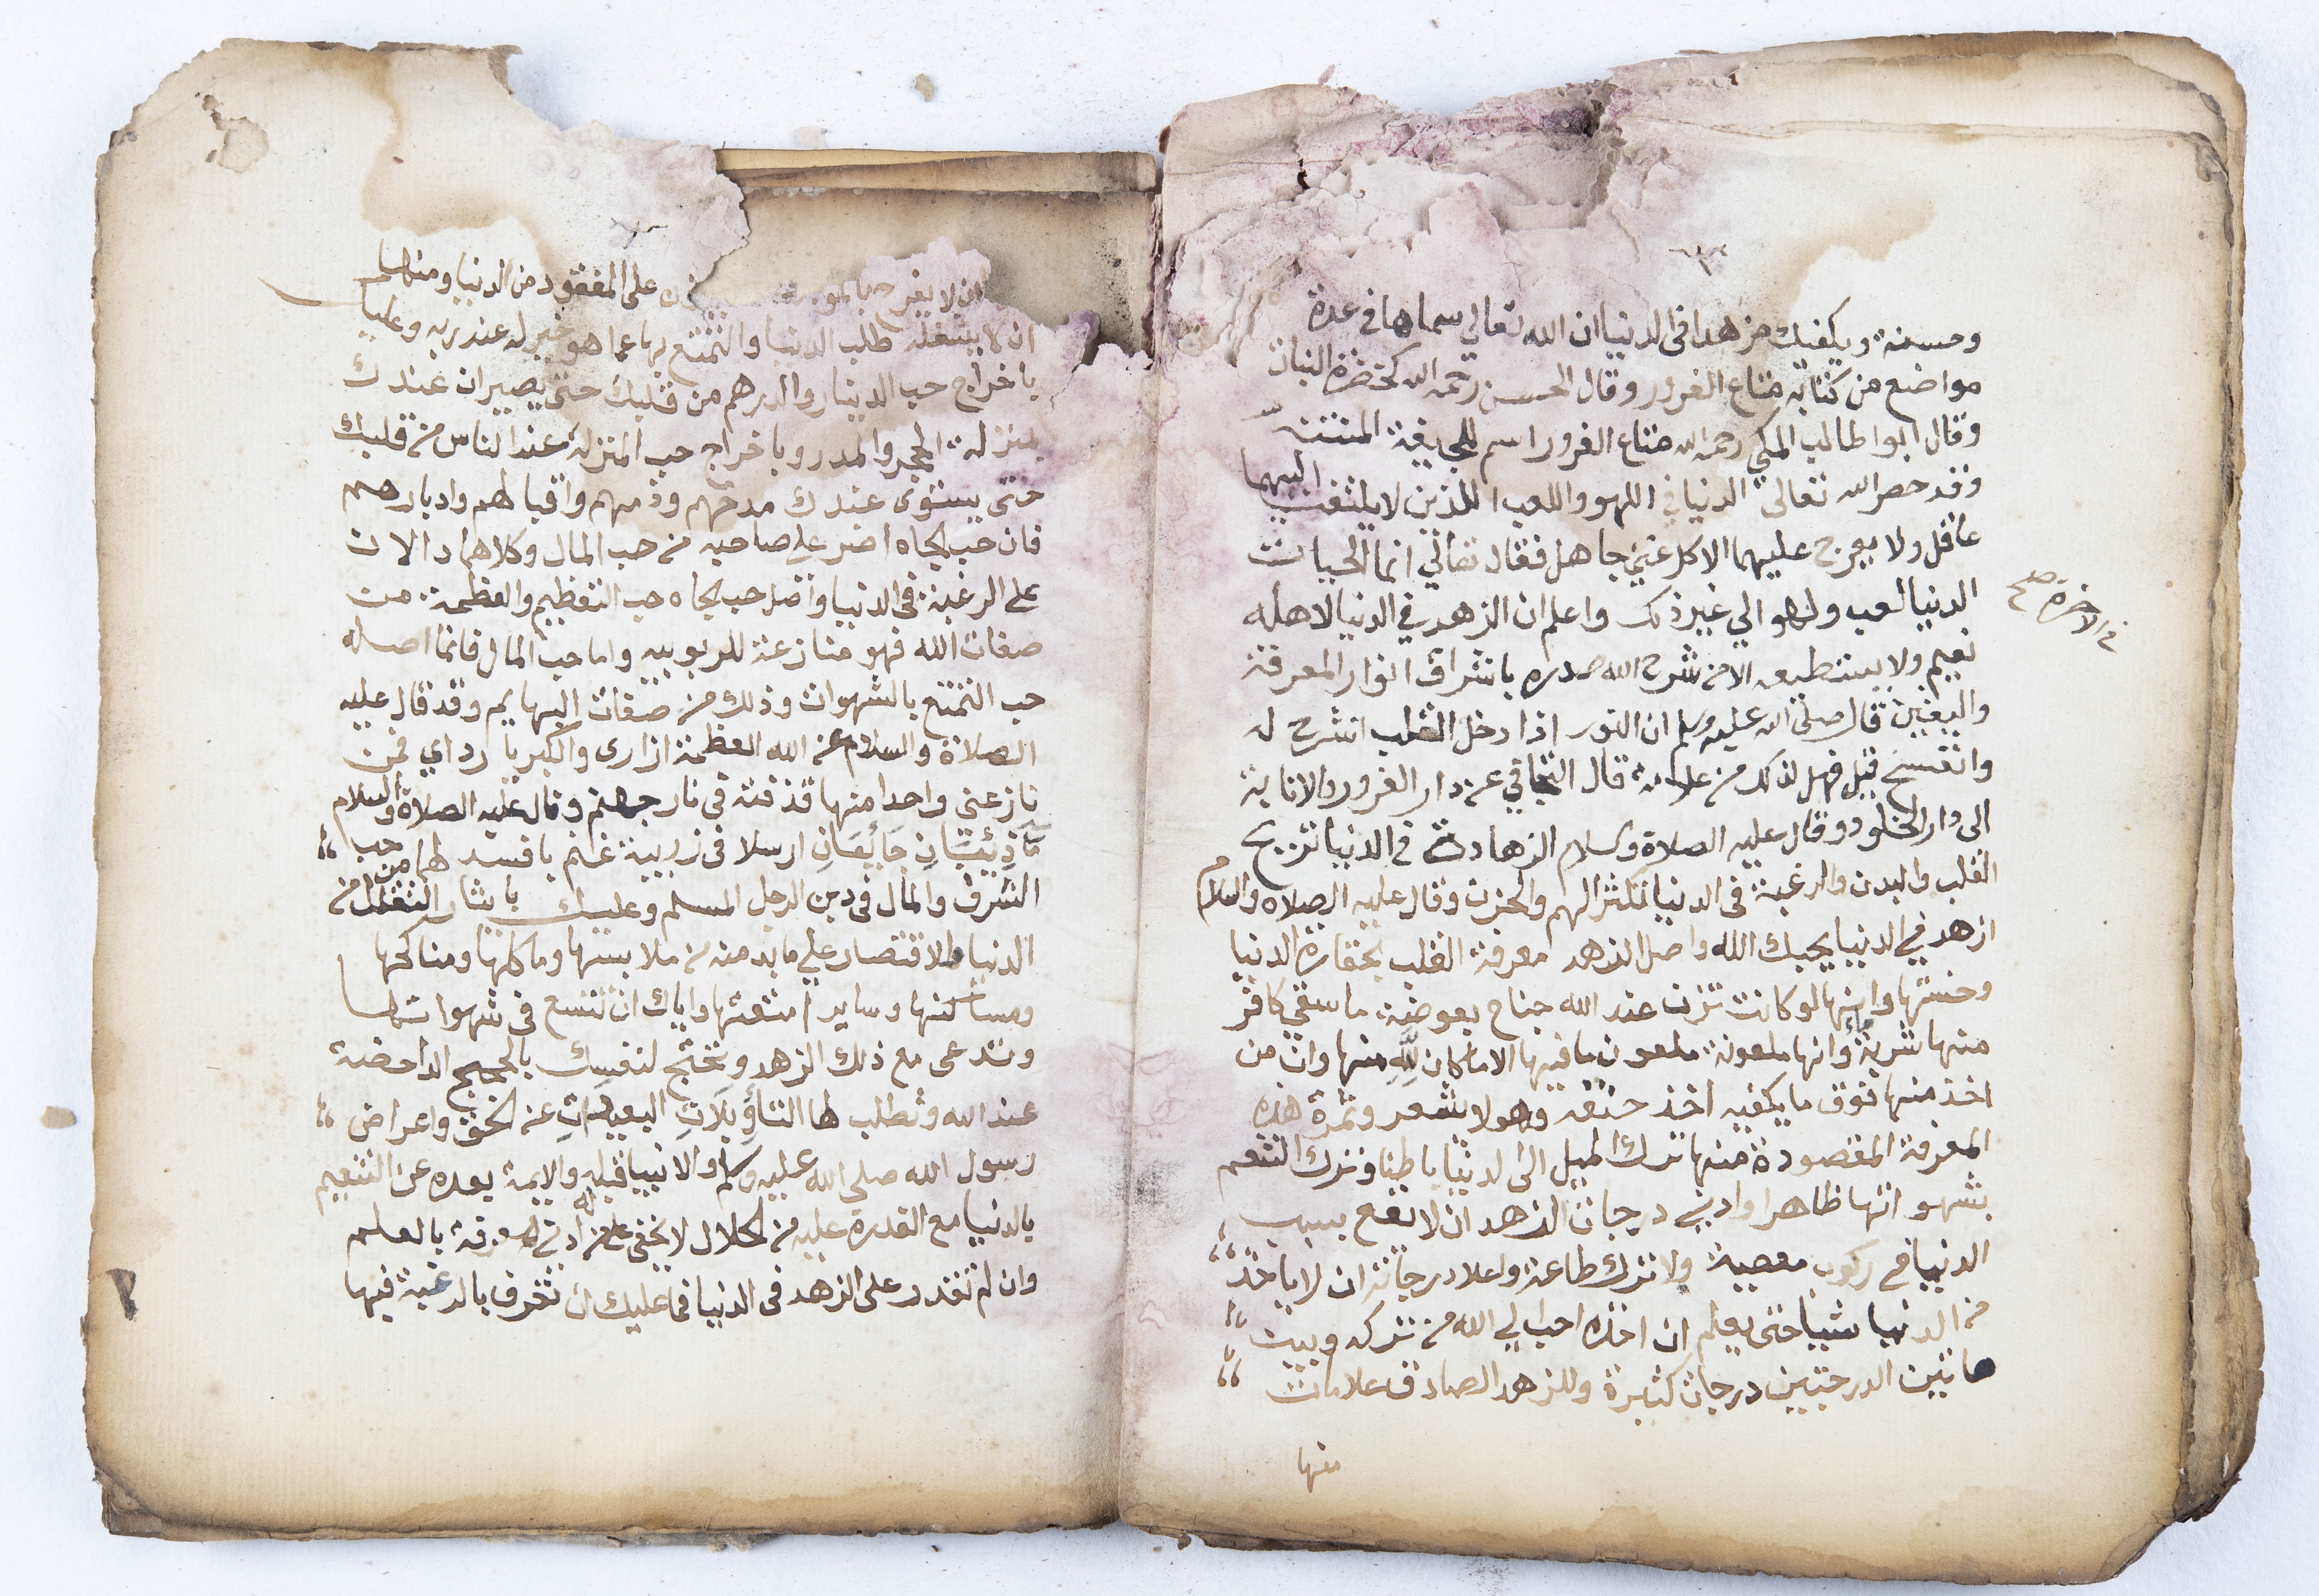 وحسنة ويكفيك مزهدا في الدنيا ان الله تعالي سماها في عدة
مواضع من كتابه متاع الغرور وقال الحسن رحمه الله كخضرة النبات
وقال ابوا طالب المكي رحمه الله متاع الغرور اسم للجيفة المنتنة
وقد حصر الله تعالى الدنيا في اللهو واللعب اللذين لا يلتفت اليهما
عاقل ولا يعرج عليهما الا كل غبي جاهل فقال تعالي انما الحياة
الدنيا لعب ولهو الي غير ذلك واعلم ان الزهد في الدنيا لاهله
في الاخرة صح
نعيم ولا يستطيعه الا من شرح الله صدره باشراق انوار المعرفة
واليقين قال صلى الله عليه وسلم ان النور اذا دخل القلب انشرح له
وانفسح قيل فهل لذلك من علامة قال التجافي عن دار الغرور والانابة
الى دار الخلود وقال عليه الصلاة والسلام الزهادة في الدنيا تريح
القلب والبدن والرغبة في الدنيا تكثر الهم والحزن وقال عليه الصلاه والسلام
ازهد في الدنيا يحبك الله واصل الزهد معرفة القلب بحقارة الدنيا
وخستها وانها لو كانت تزن عند الله جناح بعوضة ما سقي كافر
منها شربة ماء وانها ملعونة ملعون ما فيها الا ما كان لله منها وان من
اخذ منها فوق ما يكفيه اخذ حتفه وهو لا يشعر وثمرة هذه
المعرفة المقصودة منها ترك الميل الى الدنيا باطنا وترك التنعم
بشهواتها ظاهرا وادني درجات الزهد ان لا تقع بسبب
الدنيا في ركوب معصية ولا ترك طاعة واعلا درجاته ان لا ياخذ
من الدنيا شيا حتى يعلم ان اخذه احب الي الله من تركه وبين
هاتين الدرجتين درجات كثيرة وللزهد الصادق علامات
منها
ان لا يفرح بالمو على المفقود من الدنيا ومنها
ان لا يشغله طلب الدنيا والتمتع بها عما هو خير له عند ربه وعليك
باخراج حب الدينار والدرهم من قلبك حتى يصيران عندك
بمنزلة الحجر والمدر وباخراج حب المنزلة عند الناس من قلبك
حتى يستوى عندك مدحهم وذمهم واقبالهم وادبارهم
فان حب الجاه اضر على صاحبه من حب المال وكلاهما دالان
على الرغبة في الدنيا واصل حب الجاه حب التعظيم والعظمة من
صفات الله فهو منازعة للربوبيه واما حب المال فانما اصله
حب التمتع بالشهوات وذلك من صفات البهايم وقد قال عليه
الصلاة والسلام عن الله العظمة ازارى والكبريا رداي فمن
نازعني واحدا منها قذفته في نار جهنم وقال عليه الصلاة والسلام
ما ذِئبَانِ جَائِعَانِ ارسلا في زريبة غنم بافسد لها من حب
الشرف والمال في دين الرجل المسلم وعليك بايثار التقلل من
الدنيا والاقتصار على ما بد منه من ملابسها وماكلها ومناكحها
ومساكنها وساير امتعتها واياك ان تتسع في شهواتها
وتدعى مع ذلك الزهد وتحتج لنفسك بالحجج الداحضة
عند الله وتطلب لها التاوِيلَاتِ البعيدَاتِ عن الحق واعراض
رسول الله صلى الله عليه وسلم والانبيا قبله والايمة بعده عن التنعيم
بالدنيا مع القدرة عليه من الحلال لا يخفى على من له ادني معرفة بالعلم
وان لم تقدر على الزهد في الدنيا فعليك ان تعترف بالرغبة فيها